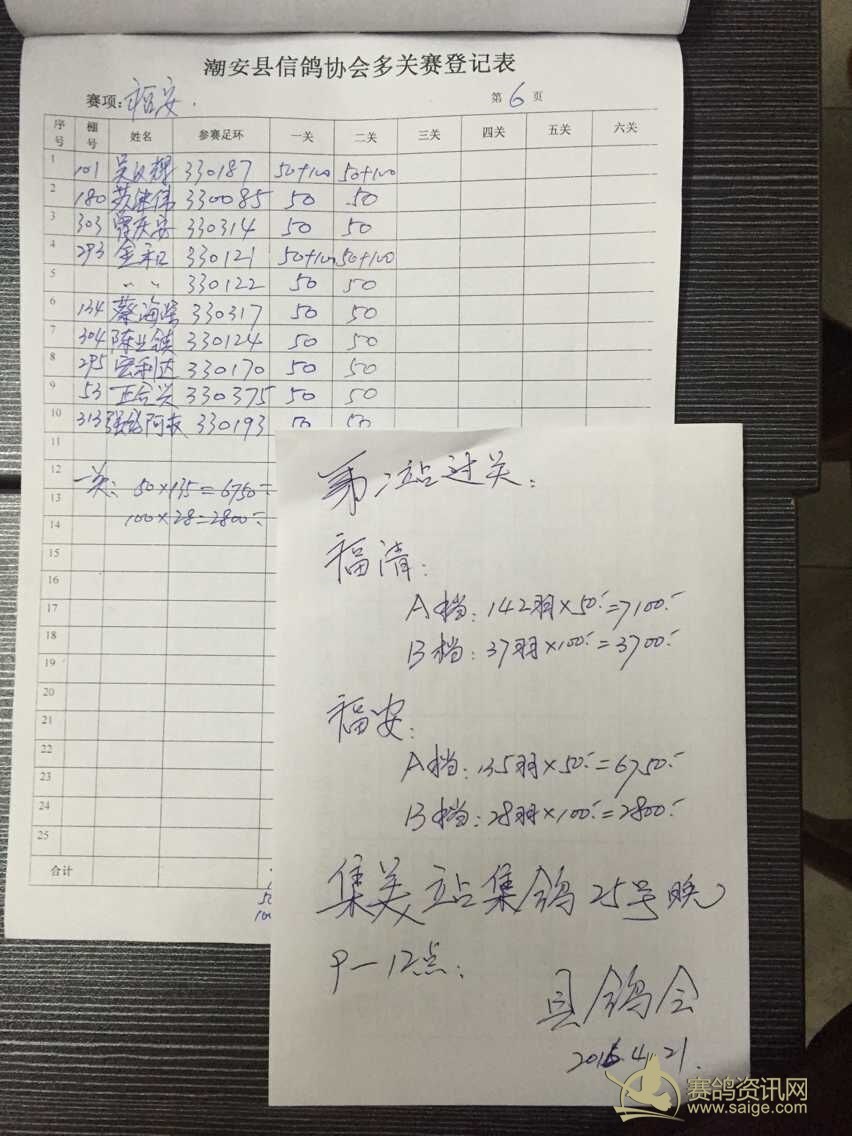 潮安县信鸽协会多关赛登记表
赛项:福安. 第6页
序号 棚号 姓名 参赛足环 一关 二关 三关 四关 五关 六关
1 101 330187 50+100 50+100
2 180 330085 50 50
3 303 曾庆安 330314 50 50
4 293 金和 330121 50+100 50+100
5 〃 330122 50 50
6 134 蔡海 330317 50 50
7 304 陈 330124 50 50
8 295 宏利达 330170 50 50
9 53 正合兴 330375 50 50
10 313 330193 50 50
11
12 一关: 50×135=6750
13 100×28=2800
14
15
16
17
18
19
20
21
22
23
24
25
合计
50
100
第2站过关:
福清:
A档:142羽×50=7100
B档:37羽×100=3700
福安:
A档:135羽×50=6750
B档:28羽×100=2800
集美站集鸽25号晚
9—12点:
县鸽会
2016.4.21.
赛鸽资讯网
www.saige.com